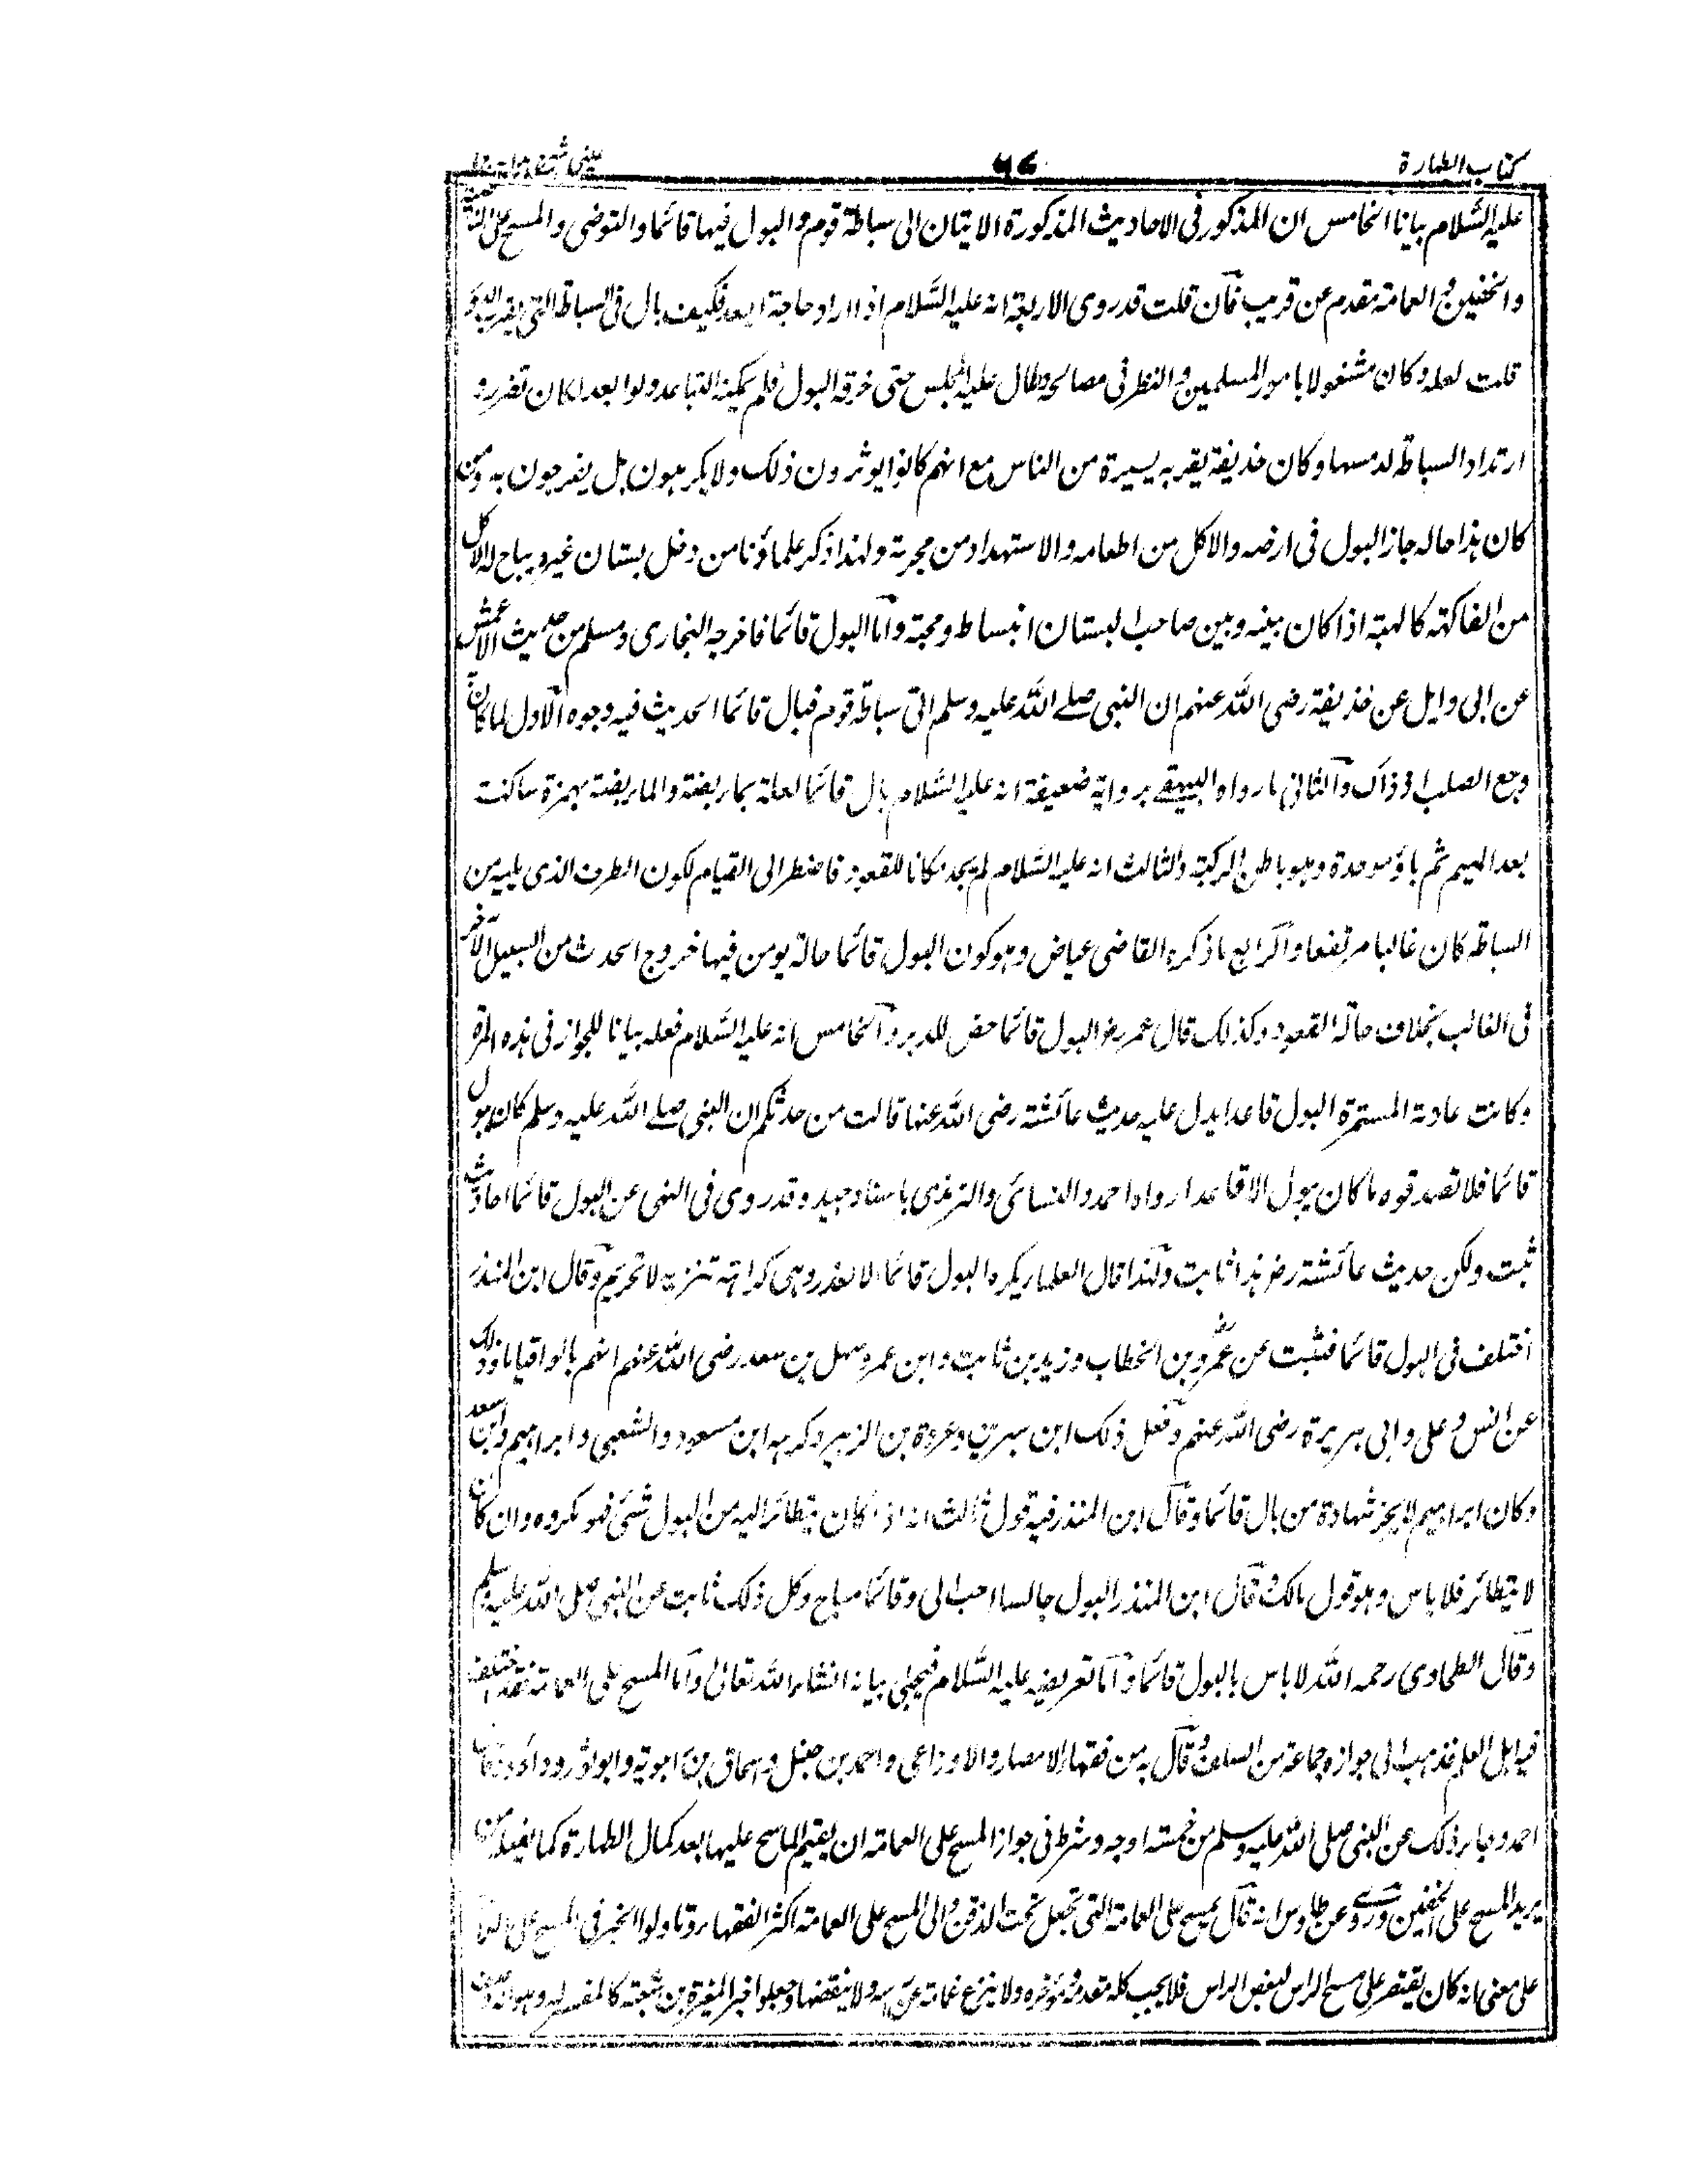 كتاب الطهارة
٥٦
عينى شرح هداية
عليه السّلام بيانا الخامس ان المذكور فى الاحاديث المذكورة الاتيان الى سباطة قوم والبول فيها قائما والتوضى والمسح على الناصية
والخفين والعمامة مقدم عن قريب فان قلت قد روى الاربعة انه عليه السّلام اذا اراد حاجة ابعد فكيف بال فى السباطة التى بقرب الدور
قلت لعله كان مشغولا بامور المسلمين والنظر فى مصالحه وطال عليه المجلس حتى خرقه البول فلم يمكنه التباعد ولو ابعد لكان تضرر و
ارتداد السباطة لدمسها وكان حذيفة بقربه يسيرة من الناس مع انهم كانوا يوثرون ذلك ولا يكرهون بل يفرحون به ومن
كان هذا حاله جاز البول فى ارضه والاكل من اطعامه والاستمداد من محبرته ولهذا ذكر علماؤنا من دخل بستان غيره يباح له الاكل
من الفاكهة كالهبة اذا كان بينه وبين صاحب البستان انبساط ومحبة وآما البول قائما فاخرجه البخارى ومسلم من حديث الاعمش
عن ابى وايل عن حذيفة رضى اللّه عنهم ان النبى صلے اللّه عليه وسلم اتى سباطة قوم فبال قائما الحديث فيه وجوه الآول لما كان
وجع الصلب اذ ذاك وآلثانى ما رواه البيهقے برواية ضعيفة انه عليه السّلام بال قائما لعلة بمأبضه والمابضة بهمزة ساكنة
بعد الميم ثم باؤ موحدة وهو باطن الركبة والثالث انه عليه السّلام لم يجد مكانا للقعود فاضطر الى القيام لكون الطرف الذى يليه من
السباطة كان غالبا مرتفعا وآلرابع ما ذكره القاضى عياض وهو كون البول قائما حالة يومن فيها خروج الحدث من السبيل الآخر
فى الغالب بخلاف حالة القعود وكذلك قال عمر رض البول قائما حض للدبر وآلخامس انه عليه السّلام فعله بيانا للجواز فى هذه المرة
وكانت عادته المستمرة البول قاعدا يدل عليه حديث عائشة رضى اللّه عنها قالت من حدثكم ان النبى صلے اللّه عليه وسلم كان يبول
قائما فلا تصدقوه ما كان يبول الا قاعدا رواه احمد والنسائى والترمذى باسناد جيد وقد روى فى النهى عن البول قائما احاديث
ثبت ولكن حديث عائشة رض هذا ثابت ولهذا قال العلماء يكره البول قائما الا لعذر وهى كراهة تنزيه لا تحريم وقال ابن المنذر
اختلف فى البول قائما فثبت عن عمر بن الخطاب وزيد بن ثابت وابن عمر وسهل بن سعد رضى اللّه عنهم انهم بالوا قياما وذلك
عن انس وعلى وابى هريرة رضى اللّه عنهم وفعل ذلك ابن سيرين وعروة بن الزبير وكرهه ابن مسعود والشعبى وابراهيم وابن سعد
وكان ابراهيم لا يجز شهادة من بال قائما وقال ابن المنذر فيه قول ثالث انه اذا كان يتطائر اليه من البول شئ فهو مكروه وان كان
لا يتطائر فلا باس وهو قول مالك وقال ابن المنذر البول جالسا احب الى وقائما مباح وكل ذلك ثابت عن النبى صلى اللّه عليه وسلم
وقال الطحاوى رحمه اللّه لا باس بالبول قائما وآما تعريضه عليه السّلام فيجئ بيانه انشاء اللّه تعالى وآما المسح على العمامة فقد اختلف
فيه اهل العلم فذهب الى جوازه جماعة من السلف وقال به من فقهاء الامصار والاوزاعى واحمد بن حنبل واسحاق بن راهوية وابو ثور وداؤد وقال
احمد وجاء ذلك عن النبى صلى اللّه عليه وسلم من خمسة اوجه وشرط فى جواز المسح على العمامة ان يقيم الماسح عليها بعد كمال الطهارة كما يفعله من
يريد المسح على الخفين وروى عن طاوس انه قال يمسح على العمامة التى تجعل تحت الذقن والى المسح على العمامة اكثر الفقهاء وتاولوا الخبر فى المسح على العمامة
على معنى انه كان يقتصر على مسح الراس لبعض الراس فلا يجب كله مقدمه ومؤخره ولا ينزع عمامة عن راسه ولا ينقضها وجعلوا خبر المغيرة بن شعبة كالمفسر له وهو انه وصف